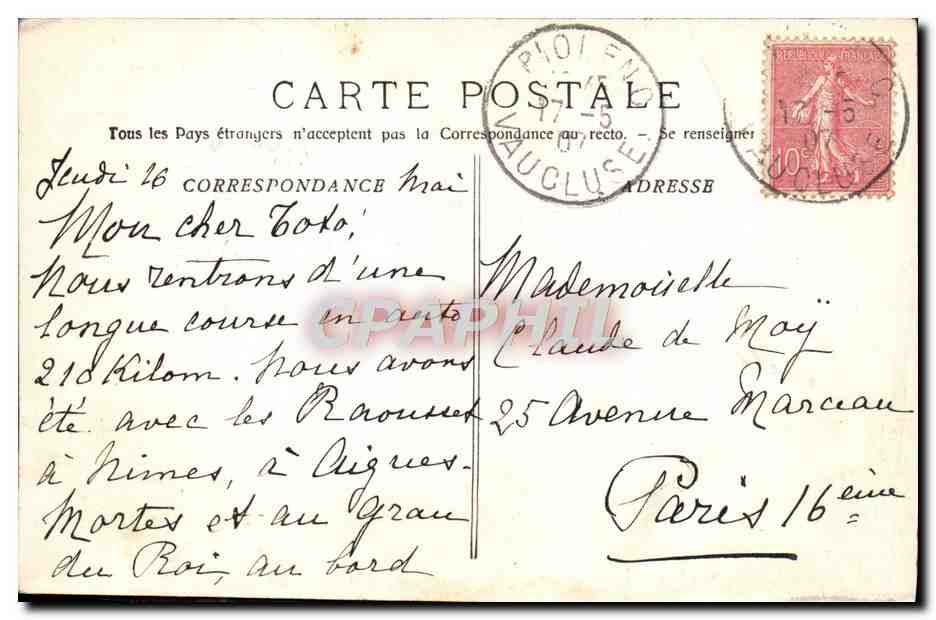 CARTE POSTALE
Tous les Pays étrangers n'acceptent pas la Correspondance au recto. - Se renseigner
PIOLENC
17-5
07
VAUCLUSE
REPUBLIQUE FRANCAISE
10c
17-5
07
VAUCLUSE
Jeudi 16 CORRESPONDANCE Mai
Mon cher Toto,
Nous rentrons d'une
longue course en auto
210 Kilom. Nous avons
été avec les Raousset
à Nimes, à Aigues-
Mortes et au Grau
du Roi, au bord
ADRESSE
Mademoiselle
Claude de Moÿ
25 Avenue Marceau
Paris 16 ème
CPAPHIL